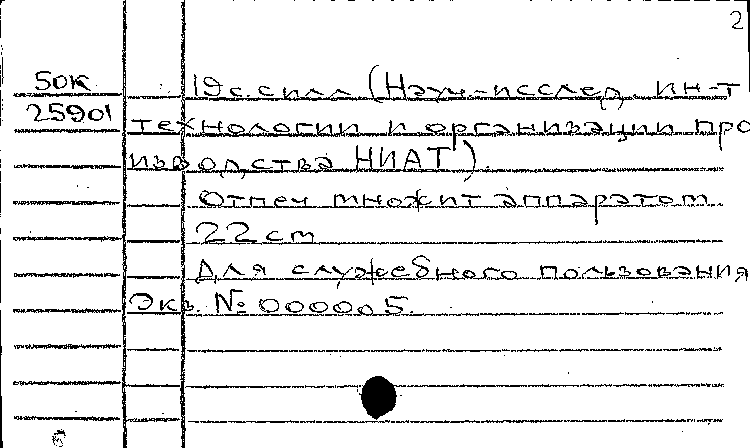 2
50к 19 с. с илл (Науч-исслед. ин-т
25901 технологии и организации про
изводства НИАТ).
Отпеч множит аппаратом
22 cm
Для служебного пользования
Экз. № 000005.